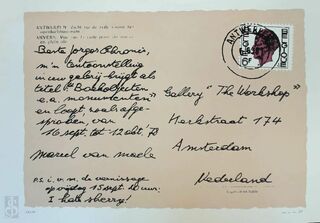 ANTWERPEN
Beste Jorges Chronis,
m'n tentoonstelling
in uw galerij krijgt als
titel "Boekobjecten
e.a. monumenten"
en loopt zoals afge-
sproken van
16 sept. tot 12 okt 78
marcel van maele
P.S. i.v.m. de vernissage
op vrijdag 15 sept. 20 uur:
I hate sherry!
ANTWERPEN
Gallery "The Workshop"
Herkstraat 174
Amsterdam
Nederland